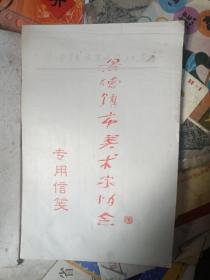 景德镇市美术家协会
专用信笺